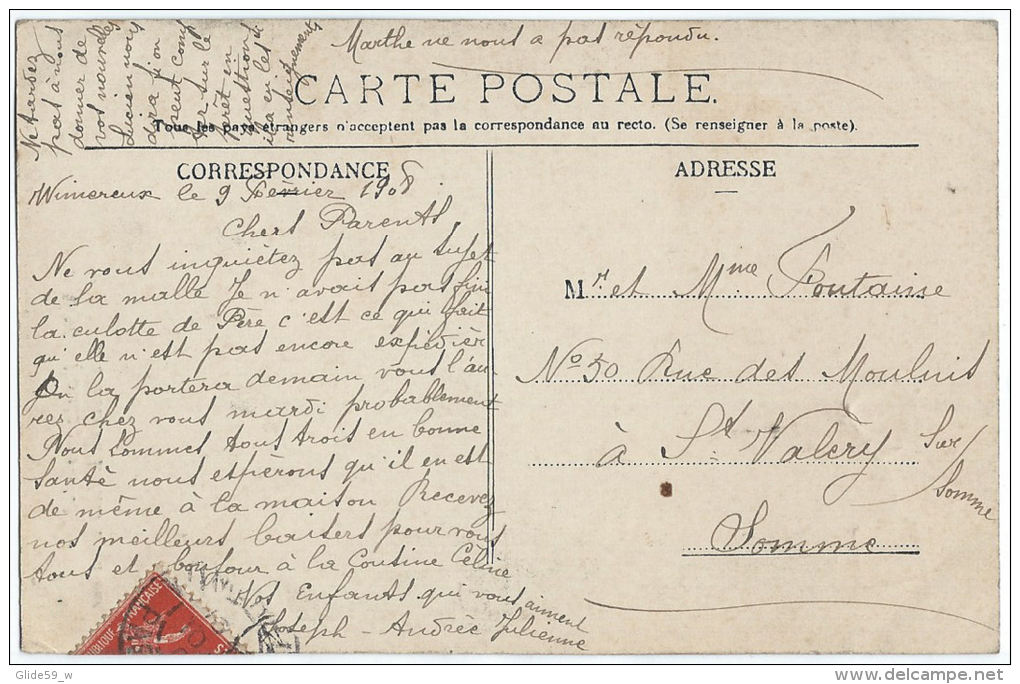 Marthe ne nous a pas répondu.
N tardez
pas à nous
donner de
vos nouvelles
Lucien nous
dira si on
peut comp
ter sur le
prêt en
question
il a eu les
renseignements
CARTE POSTALE.
Tous les pays étrangers n'acceptent pas la correspondance au recto. (Se renseigner à la poste).
CORRESPONDANCE
Wimereux le 9 Février 1908
Chers Parents
Ne vous inquiétez pas au sujet
de la malle Je n'avait pas fini
la culotte de Père c'est ce qui fait
qu'elle n'est pas encore expédiér
On la portera demain vous l'au-
res chez vous mardi probablement
Nous sommes tous trois en bonne
santé nous espérons qu'il en est
de même à la maison Recevez
nos meilleurs baisers pour vous
tous et bonjour à la Cousine Céline
Vos Enfants qui vous aiment
Joseph - Andrée Julienne
ADRESSE
Mr et Mme Fontaine
No 50 Rue des Moulins
à St Valery Sur
Somme
Somme
Glide59_w
delcampe.net